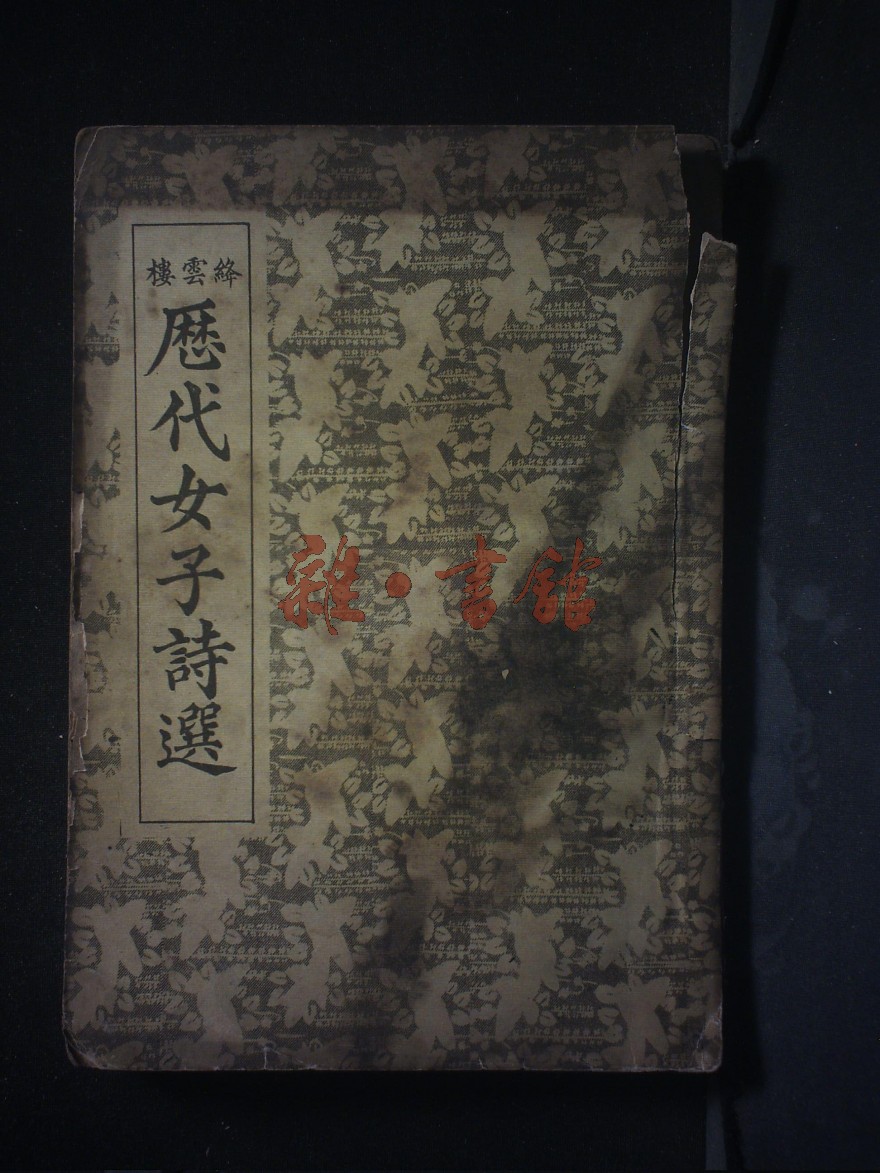 絳雲樓
歷代女子詩選
雜·書館